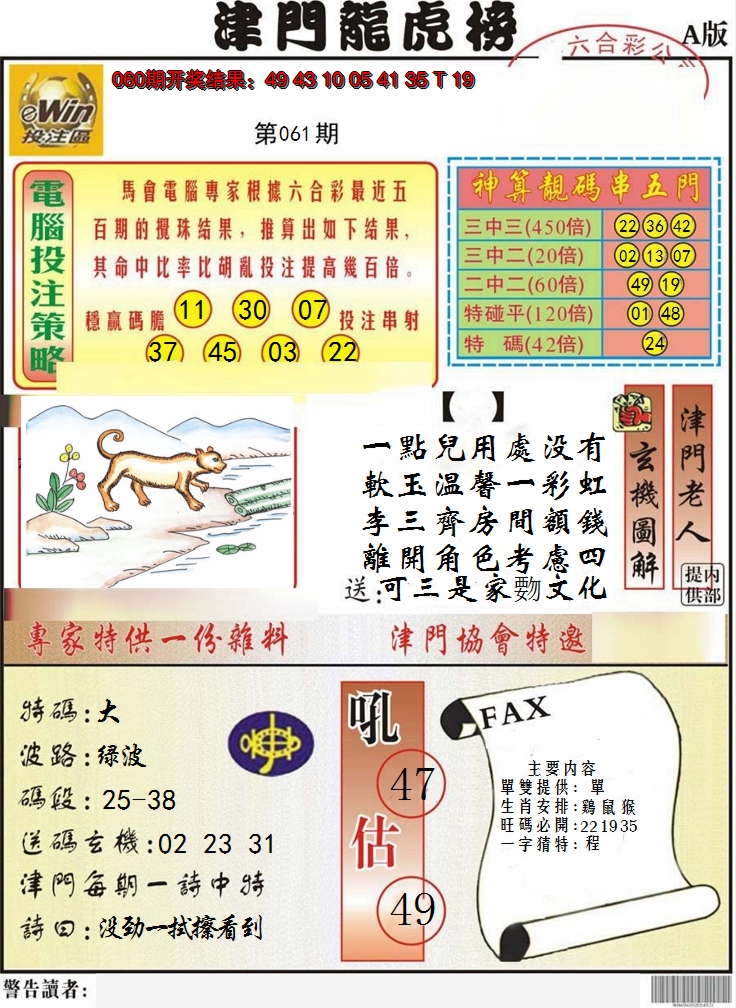 津門龍虎榜
A版
六合彩公
060期开奖结果：49 43 10 05 41 35 T 19
eWin
投注區
第061期
電腦投注策略
馬會電腦專家根據六合彩最近五
百期的攪珠结果，推算出如下结果，
其命中比率比胡亂投注提高幾百倍。
穩贏碼膽 11 30 07 投注串射
37 45 03 22
神算靚碼串五門
三中三(450倍) 22 36 42
三中二(20倍) 02 13 07
二中二(60倍) 49 19
特碰平(120倍) 01 48
特 碼(42倍) 24
【 】
一點兒用處没有
軟玉温馨一彩虹
李三齊房間額錢
離開角色考慮四
送:可三是家覅文化
玄機圖解
津門老人
内部提供
專家特供一份雜料
津門協會特邀
特碼:大
波路:绿波
碼段:25-38
送碼玄機:02 23 31
津門每期一詩中特
詩曰:没劲一拭擦看到
吼
47
估
49
FAX
主要内容
單雙提供：單
生肖安排:鷄鼠猴
旺碼必開:221935
一字猜特：程
警告讀者：